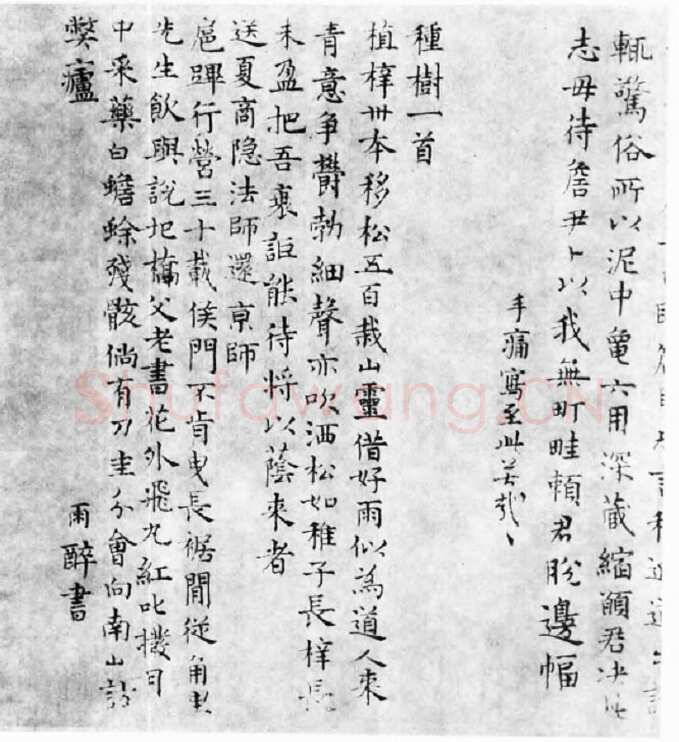 輒驚俗所以泥中龜六用深藏縮頭君決此
志毋待詹尹卜以我無町畦賴君盼邊幅
手痛寫至此
種樹一首
植梓卅本移松五百栽山靈借好雨似為道人來
青意爭欝勃細聲亦吹洒松如稚子長梓長
未盈把吾衰詎能待將以蔭來者
送夏商隐法師還京師
扈蹕行營三十載侯門不肯曳長裾閒從角里
先生飲與說圯橋父老書花外飛九紅叱撥月
中采藥白蟾蜍殘骸倘有刀圭分會向南山訪
弊廬
雨醉書
Shufawang.CN